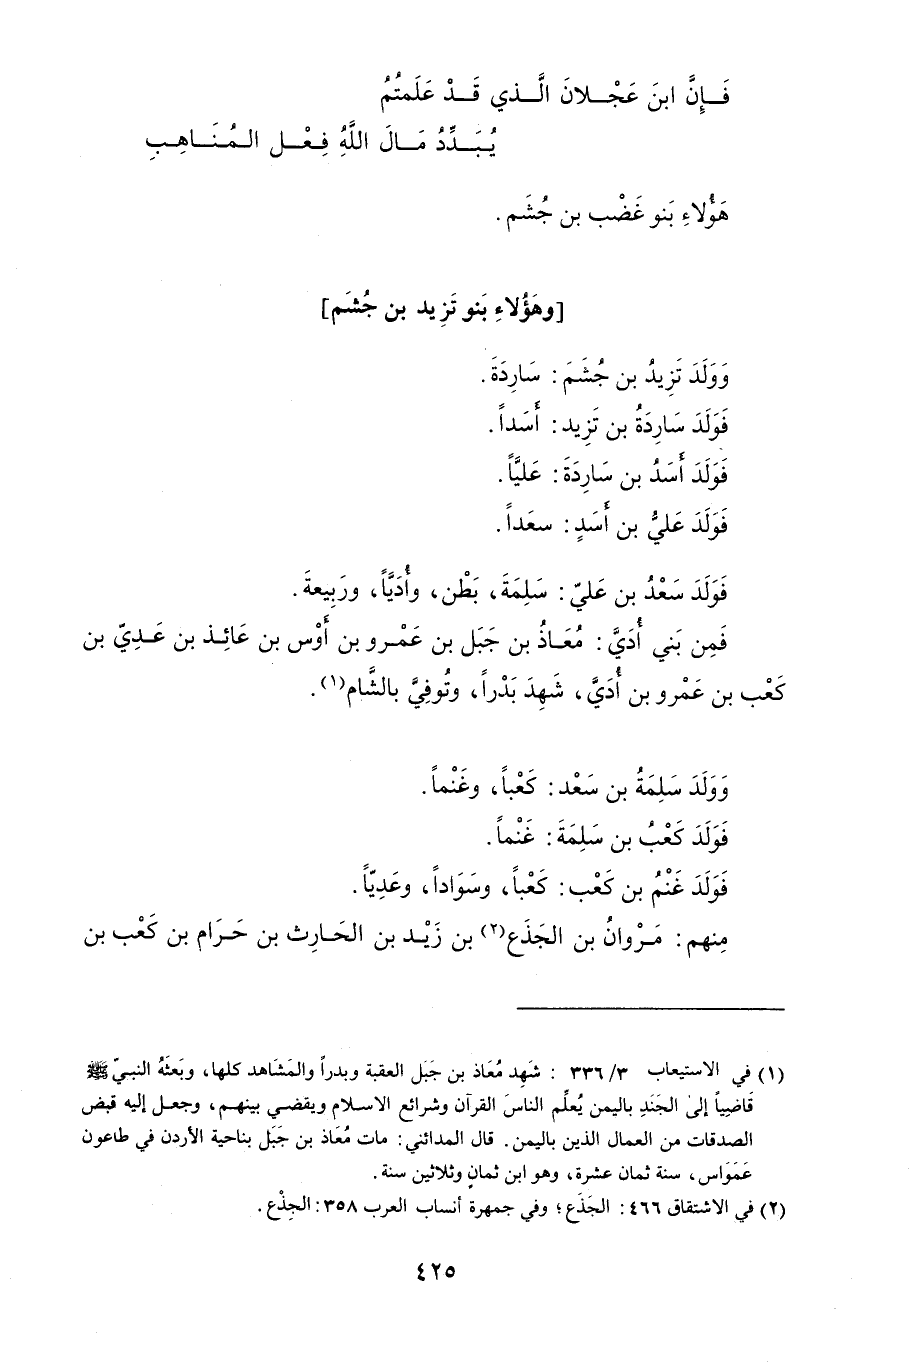 فَإِنَّ ابنَ عَجْلانَ الَّذي قَدْ عَلَمتُمُ
يُبَدِّدُ مَالَ اللَّهِ فِعْل المُنَاهِبِ
هَؤُلاءِ بَنو غَضْب بن جُشَم.
[وهَؤُلاءِ بَنو تَزِيد بن جُشَم]
وَوَلَدَ تَزِيدُ بن جُشَمَ: سَارِدَةَ.
فَوَلَدَ سَارِدَةُ بن تَزِيد: أَسَداً.
فَوَلَدَ أَسَدُ بن سَارِدَةَ: عَليَّاً.
فَوَلَدَ عَليُّ بن أَسَدٍ: سعَداً.
فَوَلَدَ سَعْدُ بن عَليّ: سَلِمَةَ، بَطْن، وأُدَيَّاً، ورَبِيعةَ.
فَمِن بَني أُدَيَّ: مُعَاذُ بن جَبَل بن عَمْرو بن أَوْس بن عَائِذ بن عَدِيّ بن
كَعْب بن عَمْرو بن أُدَيَّ، شَهِدَ بَدْراً، وتُوفِيَّ بالشَّام(١).
وَوَلَدَ سَلِمَةُ بن سَعْد: كَعْباً، وغَنْماً.
فَوَلَدَ كَعْبُ بن سَلِمَةَ: غَنْماً.
فَوَلَدَ غَنْمُ بن كَعْب: كَعْباً، وسَوَاداً، وعَدِيّاً.
مِنهم: مَرْوانُ بن الجَذَع(٢) بن زَيْد بن الحَارِث بن حَرَام بن كَعْب بن
(١) في الاستيعاب ٣/ ٣٣٦ : شَهِد مُعَاذ بن جَبَل العقبة وبدراً والمَشَاهد كلها، وبَعثَهُ النبيّ ﷺ
قَاضِياً إلىٰ الجَنَدِ باليمن يُعلِّم الناسَ القرآن وشرائع الاسلام ويقضي بينهم، وجعل إليه قبض
الصدقات من العمال الذين باليمن. قال المدائني: مات مُعَاذ بن جَبَل بناحية الأردن في طاعون
عَمَواس، سنة ثمان عشرة، وهو ابن ثمانٍ وثلاثين سنة.
(٢) في الاشتقاق ٤٦٦: الجَذَع؛ وفي جمهرة أنساب العرب ٣٥٨: الجِذْع.
٤٢٥